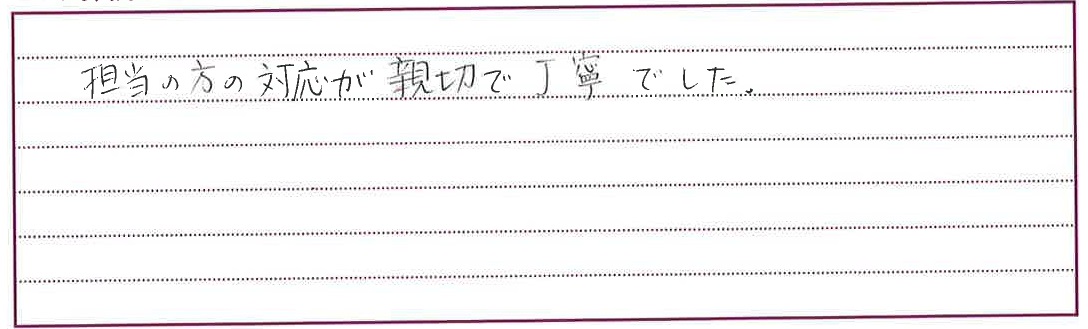 担当の方の対応が親切で丁寧でした.